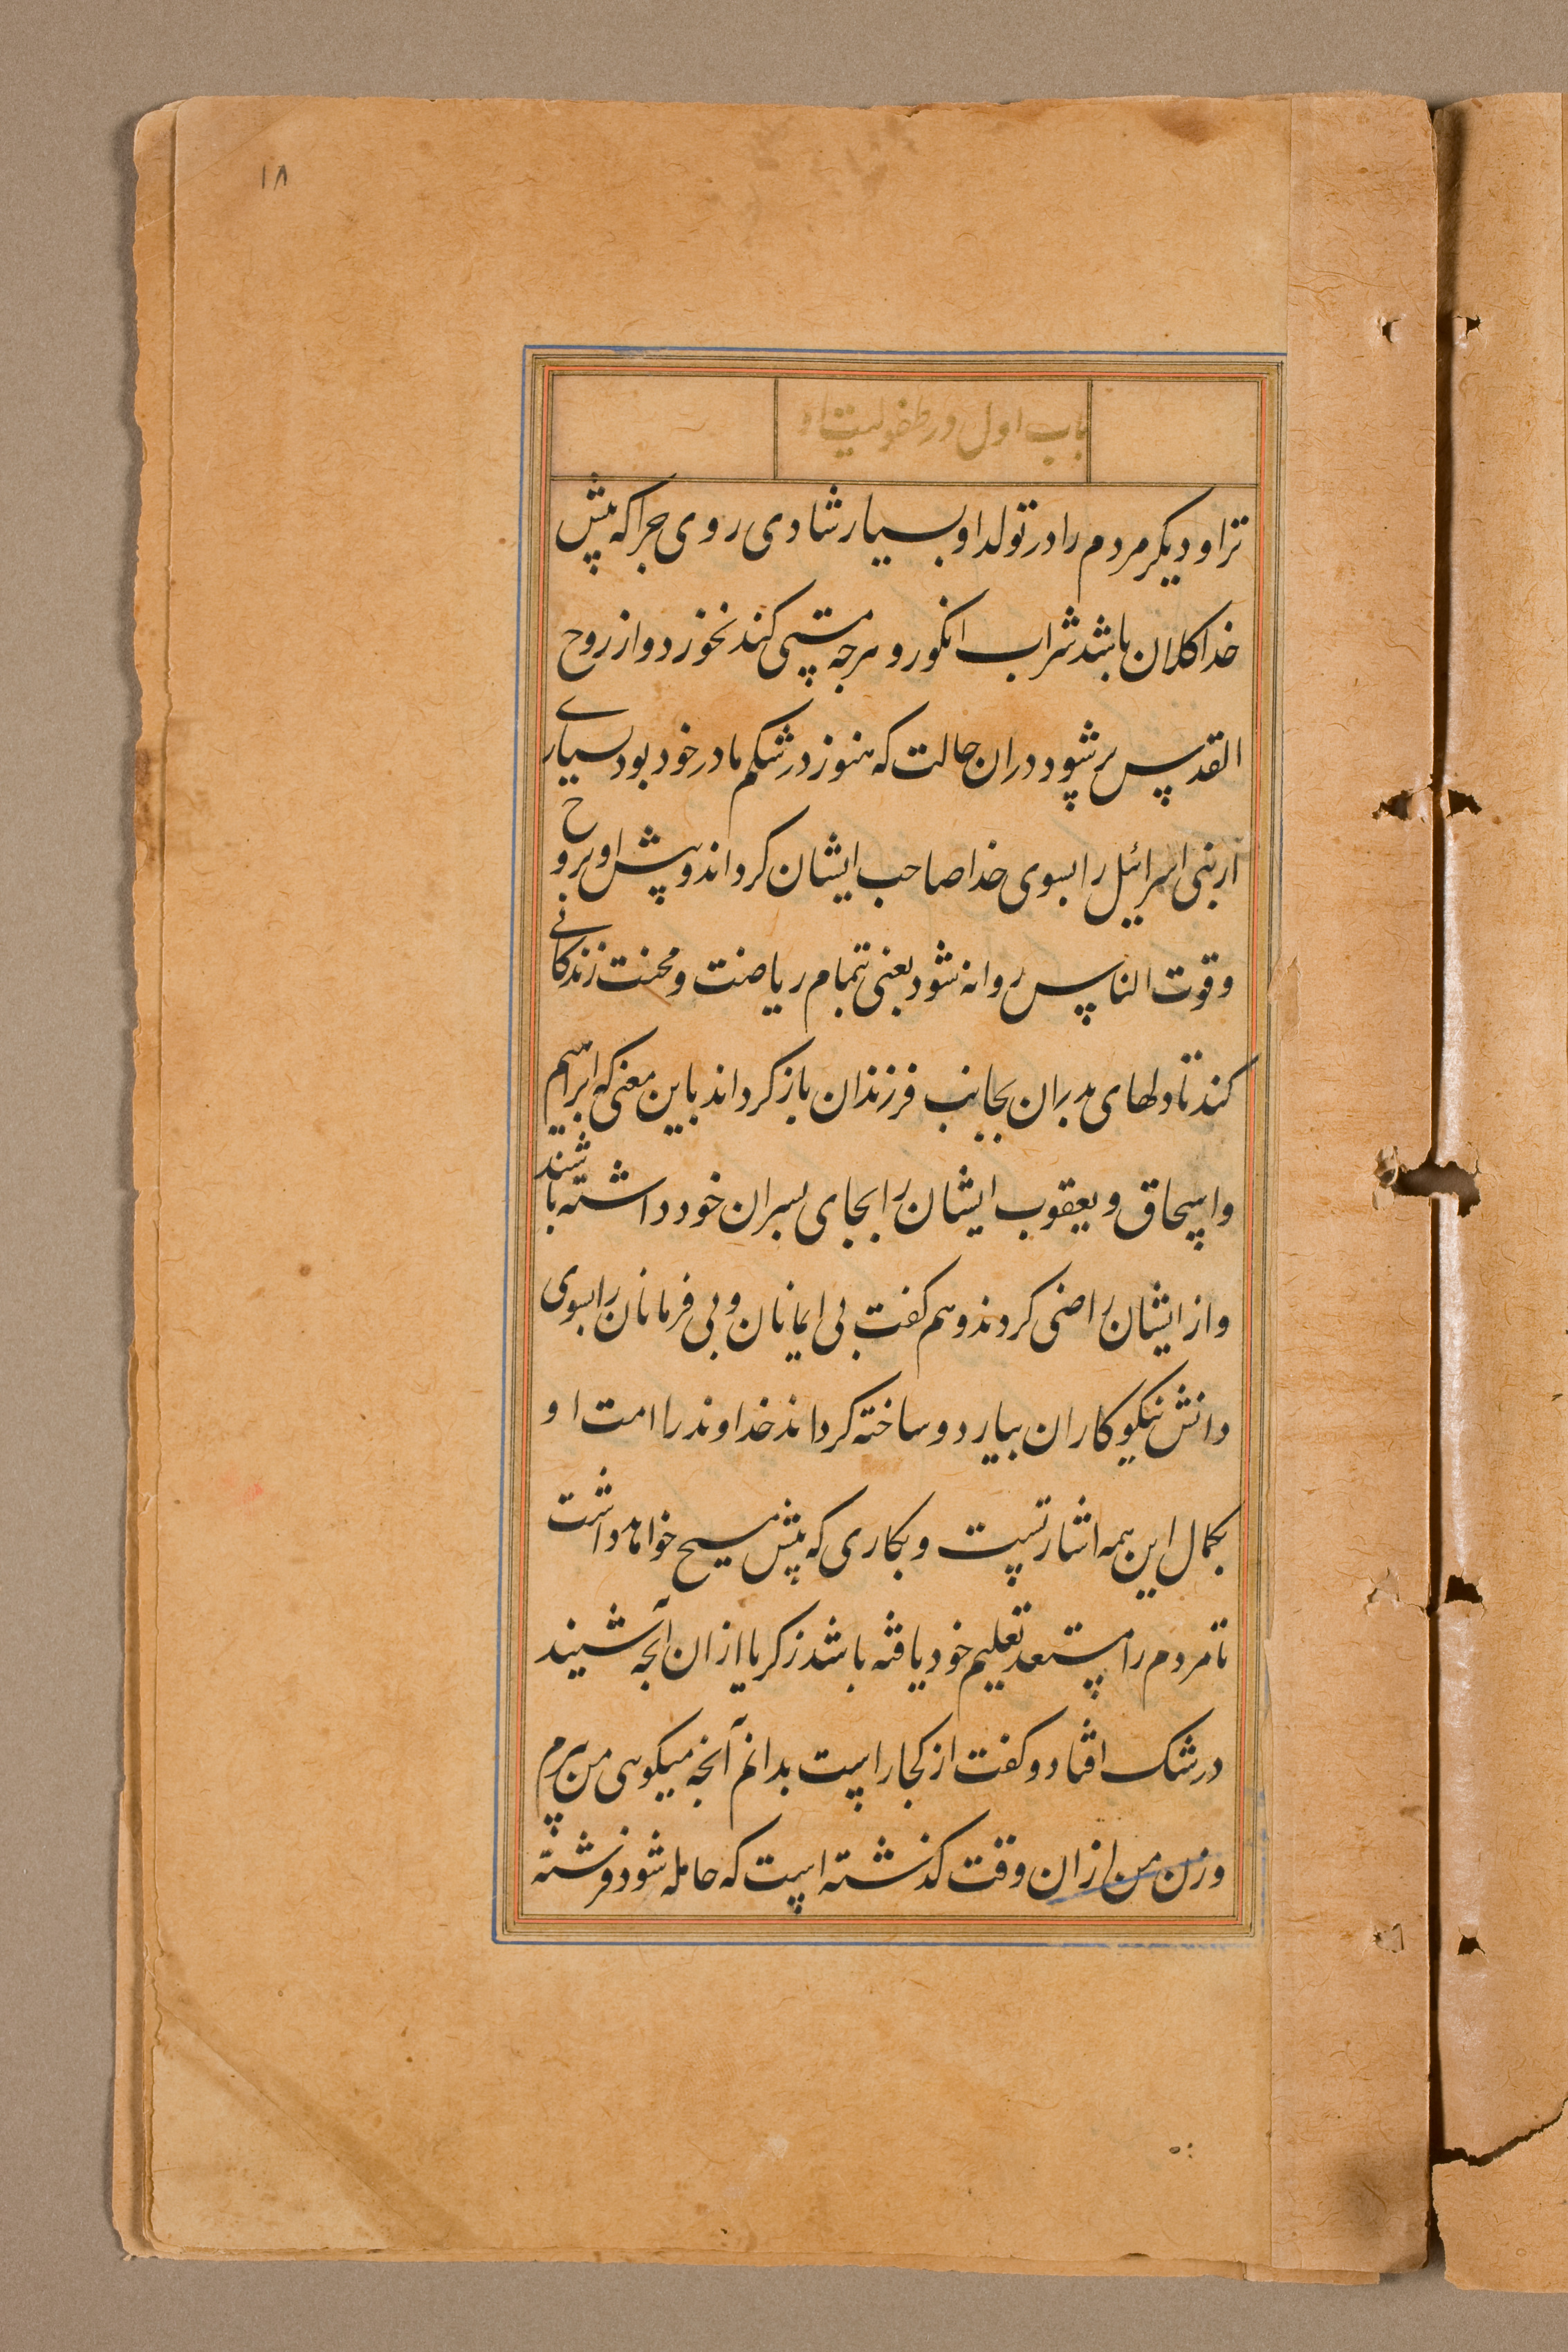 ۱۸
باب اول در طفولیت او
ترا و دیکر مردم را در تولد او بسیار شادی روی جرا که پیش
خدا کلان باشد شراب انکور و هرجه مستی کند نخورد و از روح
القدس پر شود دران حالت که هنوز در شکم مادر خود بود بسیاری
از بنی اسرائیل را بسوی خدا صاحب ایشان کرداند و پیش او بروح
و قوت الناس روانه شود یعنی بتمام ریاضت و محنت زندکانی
کند تا دلهای پدران بجانب فرزندان باز کرداند باین معنی که ابراهیم
و اسحاق و یعقوب ایشان را بجای پسران خود داشته باشند
و از ایشان راضی کردند و هم کفت بی ایمانان و بی فرمانان را بسوی
دانش نیکوکاران بیارد و ساخته کرداند خداوند را امت او
بکمال این همه اشارتست و بکاری که پیش مسیح خواهد داشت
تا مردم را مستعد تعلیم خود یافته باشد زکریا از ان آنجه شنید
در شک افتاد و کفت از کجا راست بدانم آنجه میکویی من پیرم
و زن من ازان وقت کذشته است که حامله شود فرشته